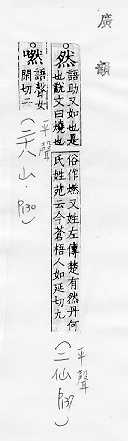 廣韻
然 語助又如也是也說文曰燒也
俗作燃又姓左傳楚有然丹何氏姓苑云今蒼梧人如延切九
平聲
(二仙 P137)
嘫 語聲女閑切二
平聲
(二十八山. P130)